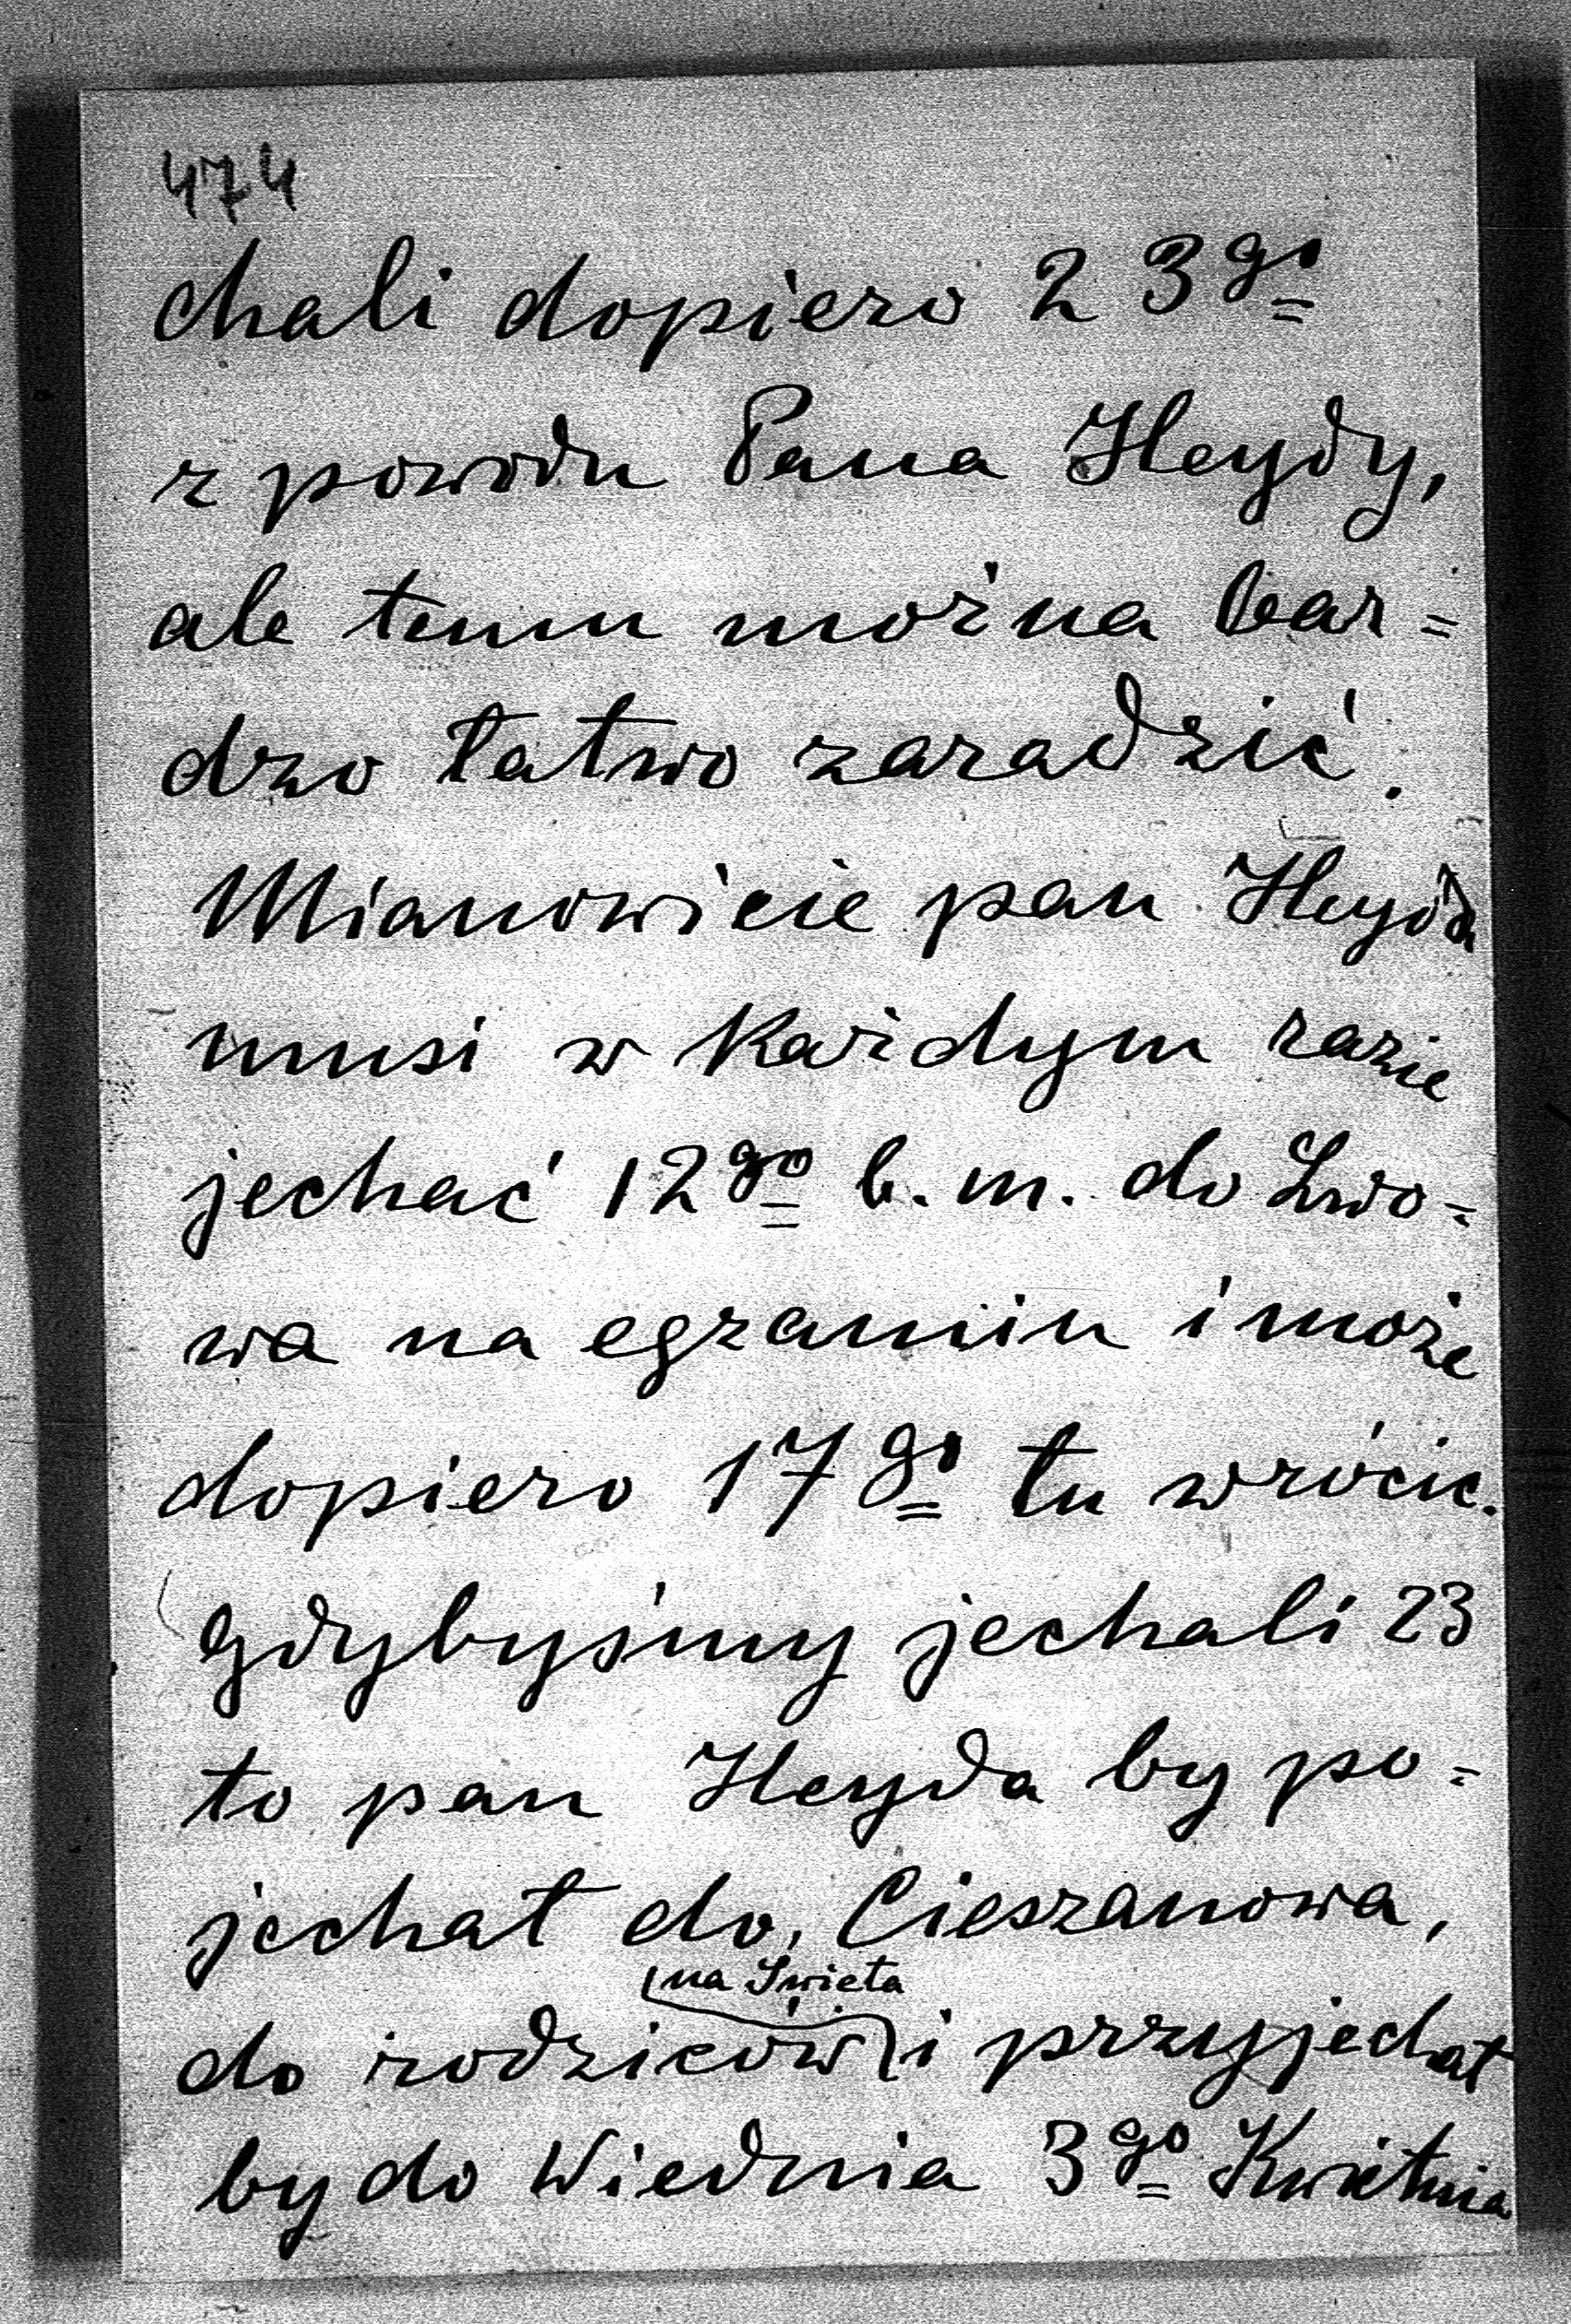 474
chali dopiero 23go
z powodu Pana Heydy,
ale temu można bar=
dzo łatwo zaradzić.
Mianowicie pan Heyda
musi w każdym razie
jechać 12go b. m. do Lwo=
wa na egzamin i może
dopiero 17go tu wrócić.
Gdybyśmy jechali 23
to pan Heyda by po=
jechał do, Cieszanowa,
na Święta
do rodziców i przyjechał
by do Wiednia 3go Kwietnia